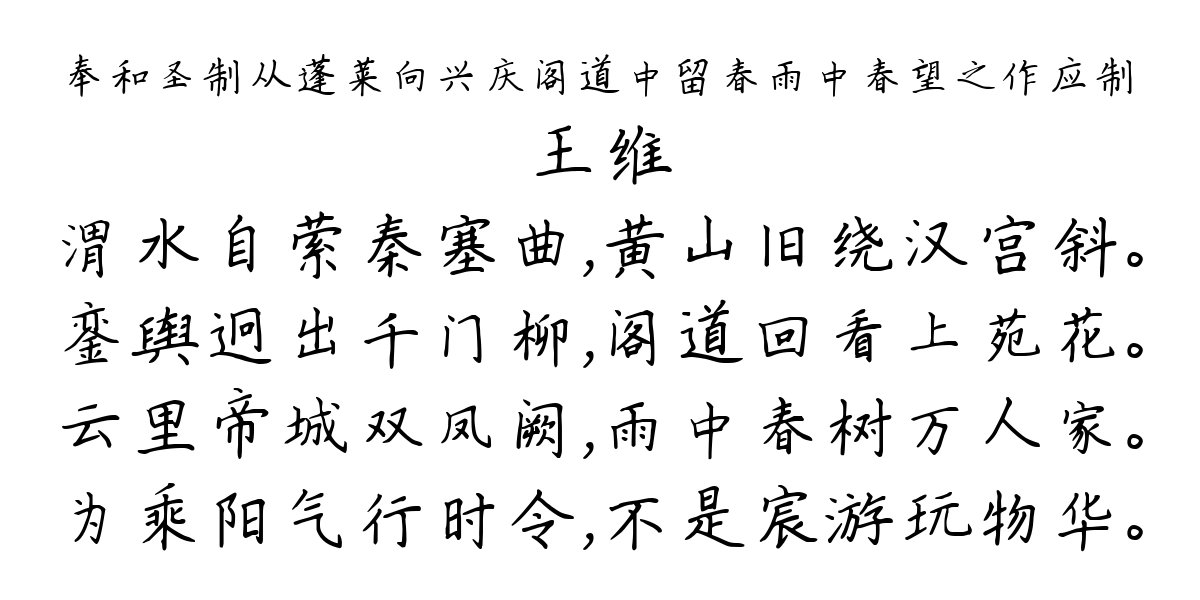 奉和圣制从蓬莱向兴庆阁道中留春雨中春望之作应制
王维
渭水自萦秦塞曲,黄山旧绕汉宫斜。
銮舆迥出千门柳,阁道回看上苑花。
云里帝城双凤阙,雨中春树万人家。
为乘阳气行时令,不是宸游玩物华。